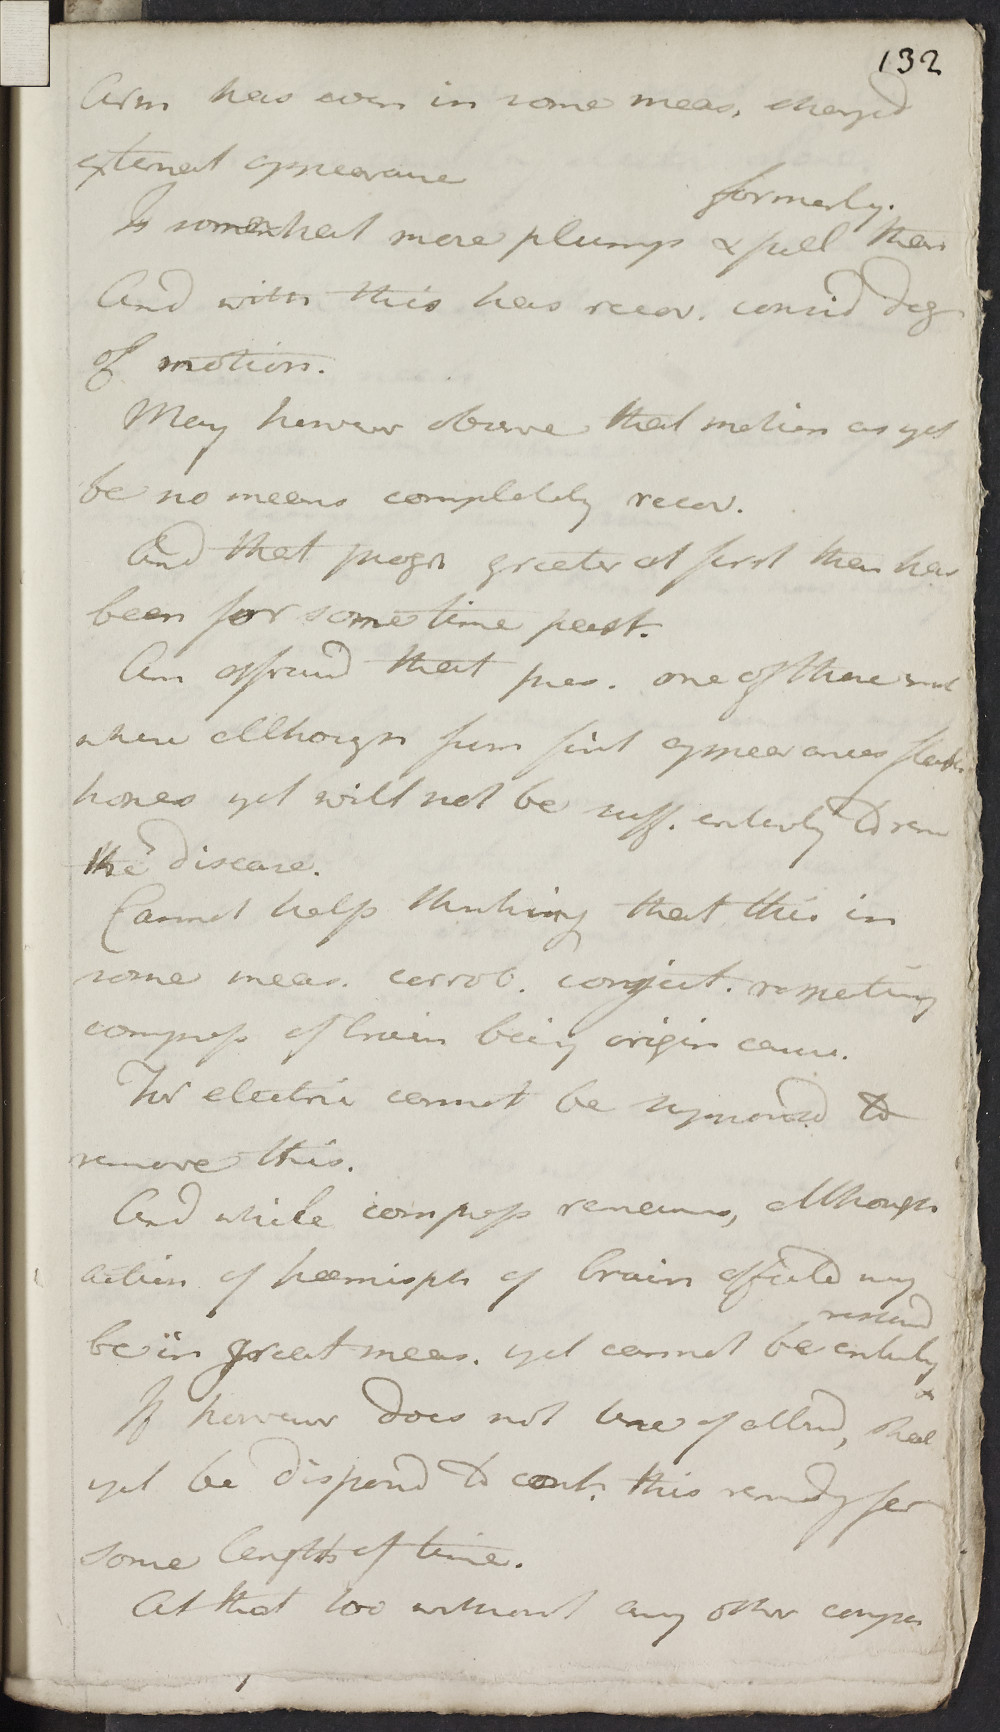 132
Arm has even in some meas. changed
external appearance
formerly.
Is somewhat more plump & full than
And with this has recov. consid deg
of motion.
May however observe that motion as yet
be no means completely recov.
And that progr greater at first than has
been for some time past.
Am affraid that pres. one of those
where allthough from first appearances
hopes yet will not be suff. entirely to rem
the disease.
Cannot help thinking that this in
some meas. corrob. conject. respecting
compress of brain being origin cause.
For electric cannot be suppos'd to
remove this.
And while compress remains, allthough
action of hemisph of brain affected may
restord
be in great meas. yet cannot be entirely
If however does not of attend, shal
yet be dispos'd to cont. this remedy for
some length of time.
At that too without any other